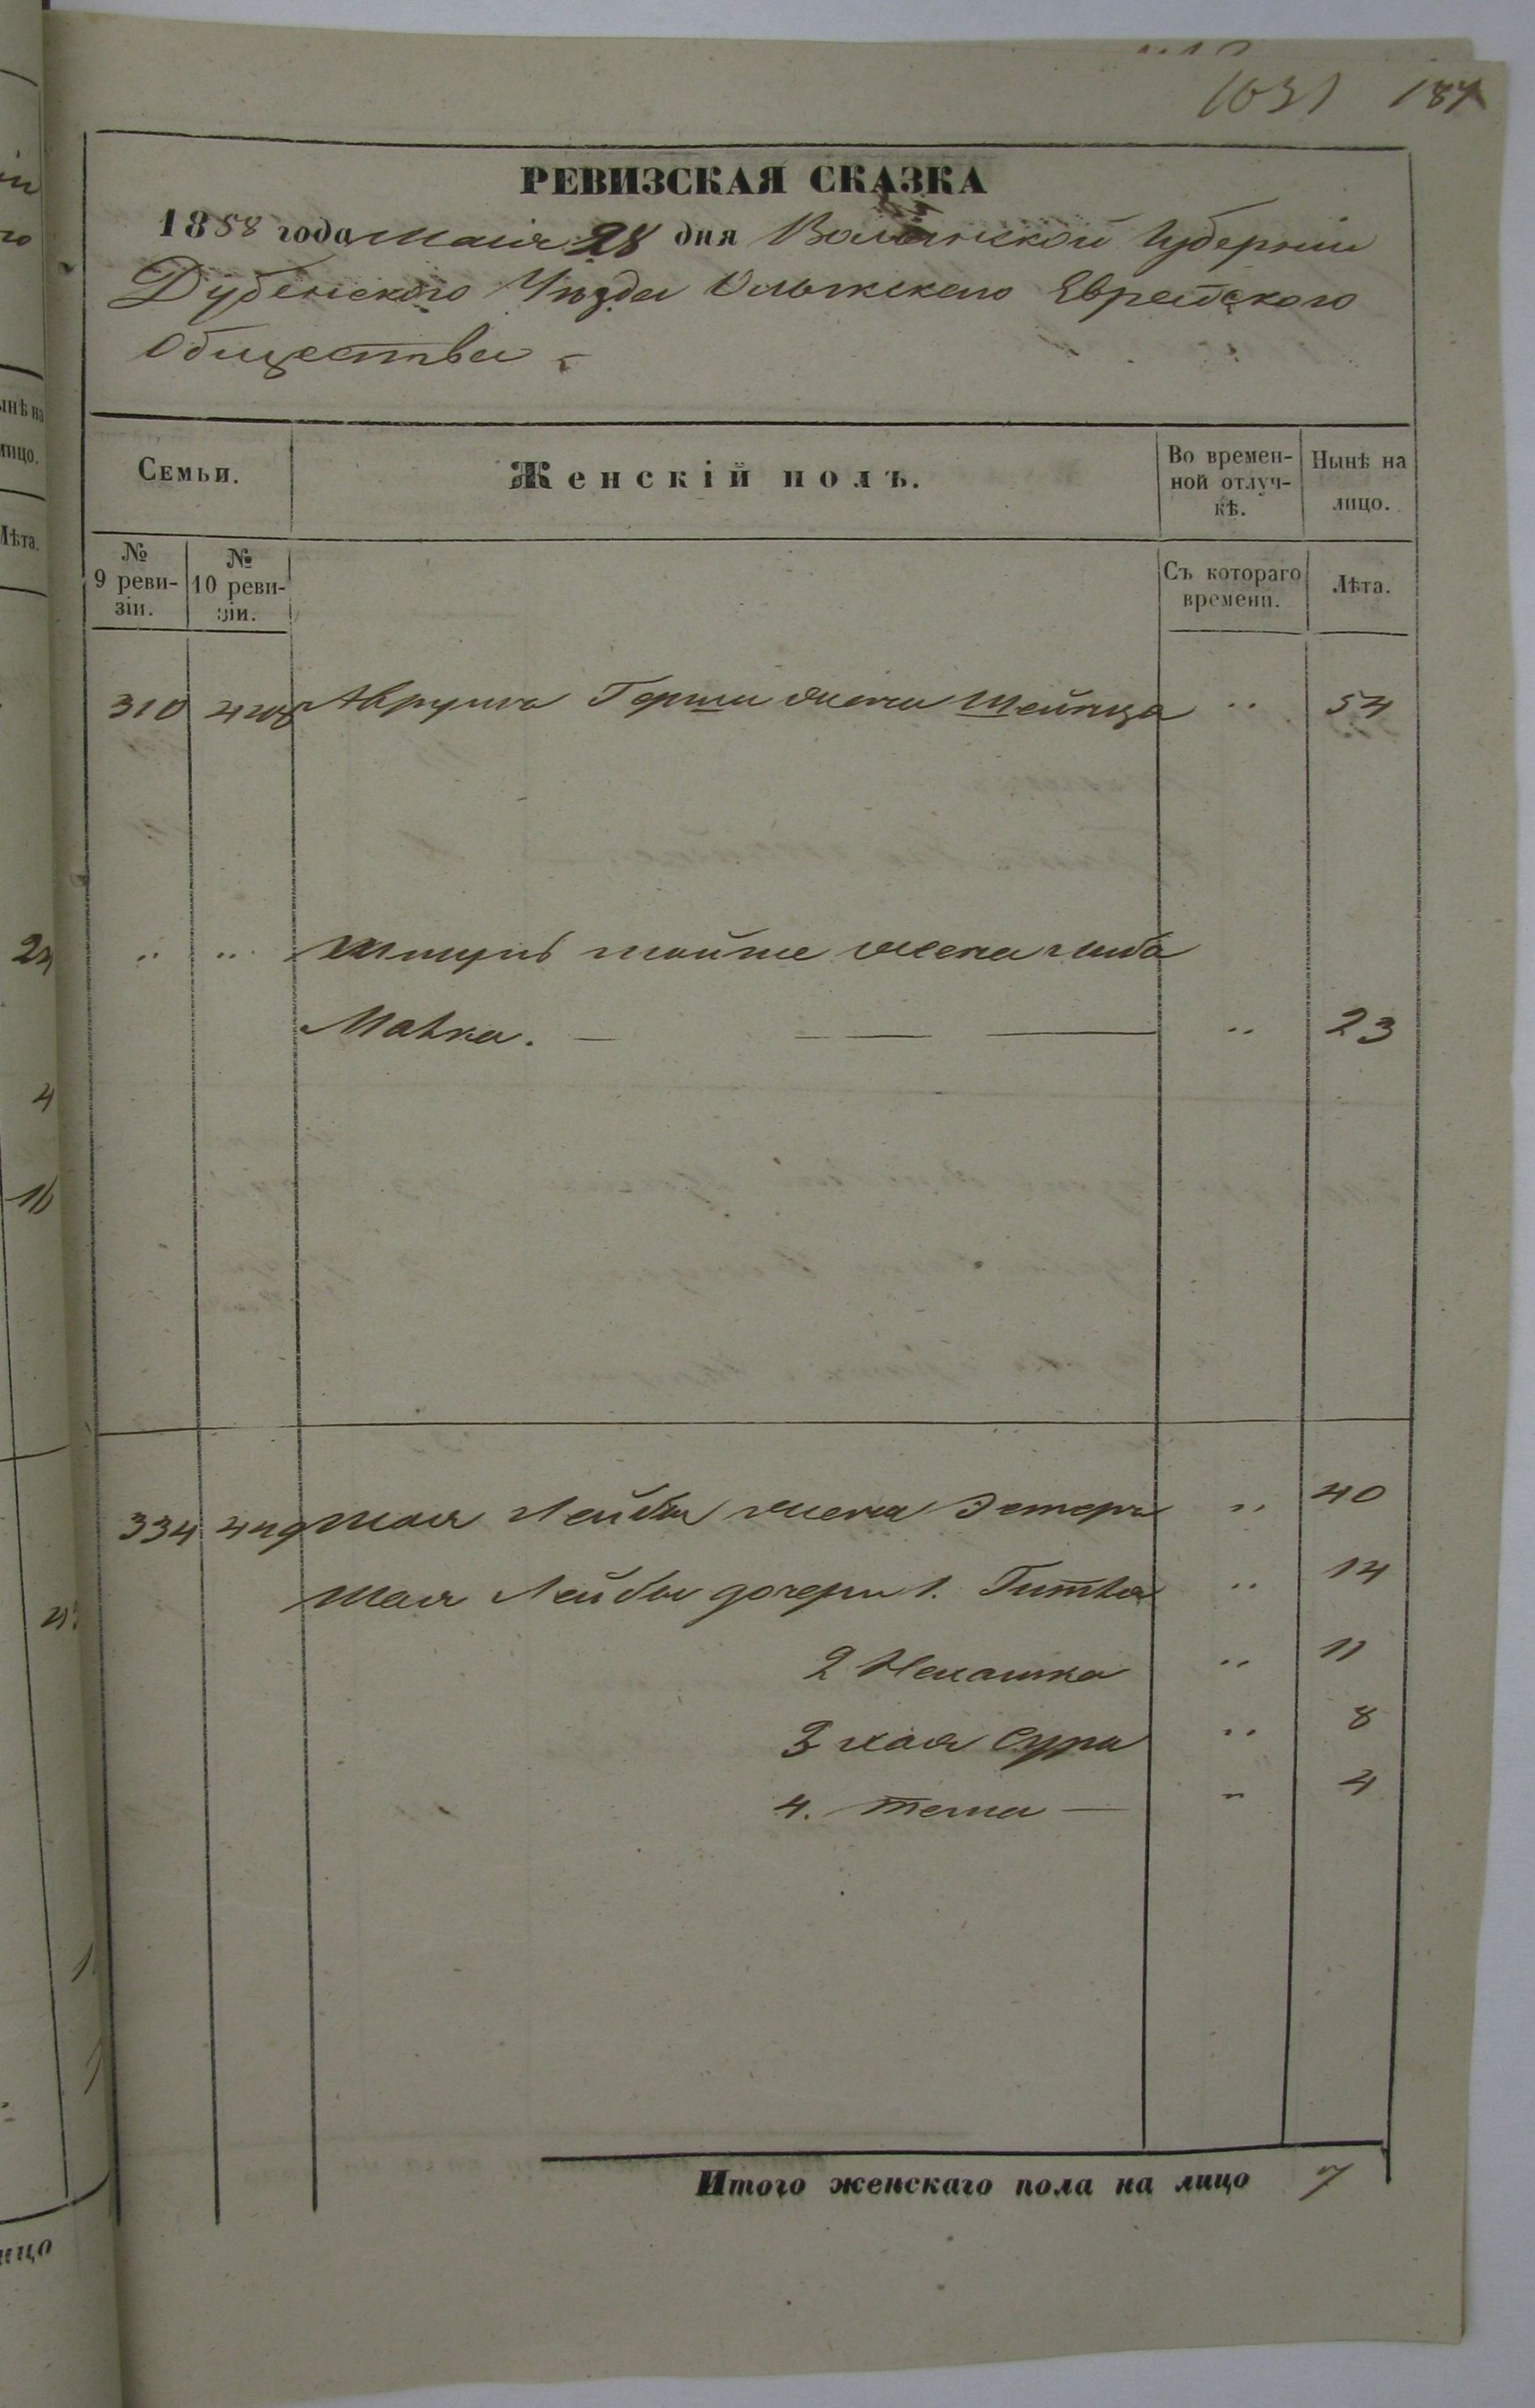 1031 187
РЕВИЗСКАЯ СКАЗКА
1858 года Маія 28 дня Волынской Губерніи
Дубенского Уезда Олыкского Еврейского
Общества
Семьи.
Женскій полъ.
Во времен-
ной отлуч-
кѣ.
Нынѣ на
лицо.
№
9 реви-
зіи.
№
10 реви-
зіи.
Съ котораго
времени.
Лѣта.
310 448 Аврума Герша жена Шейнца " 54
" " жена Либа
Малка. " 23
334 449 Шая Лейбы жена Эстера " 40
Шая Лейбы дочери 1. Гитля " 14
2 Нехашка " 11
3 хая Сура " 8
4. тема — " 4
Итого женскаго пола на лицо 7